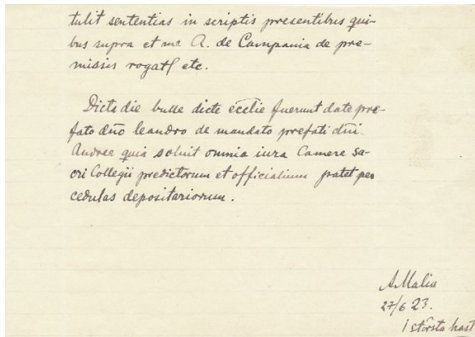 tulit sententias in scriptis presentibus qui-
bus supra et me A. de Campania de pre-
missis rogatſ etc.
Dicta die bulle dicte ecc̄lie fuerunt date pre-
fato dn̄o leandro de mandato prefati dn̄i.
Andree quia soluit omnia iura Camere Sa-
cri Collegii predictorum et officialium patet per
cedulas depositariorum.
A Malin
27/6 23.
I största hast